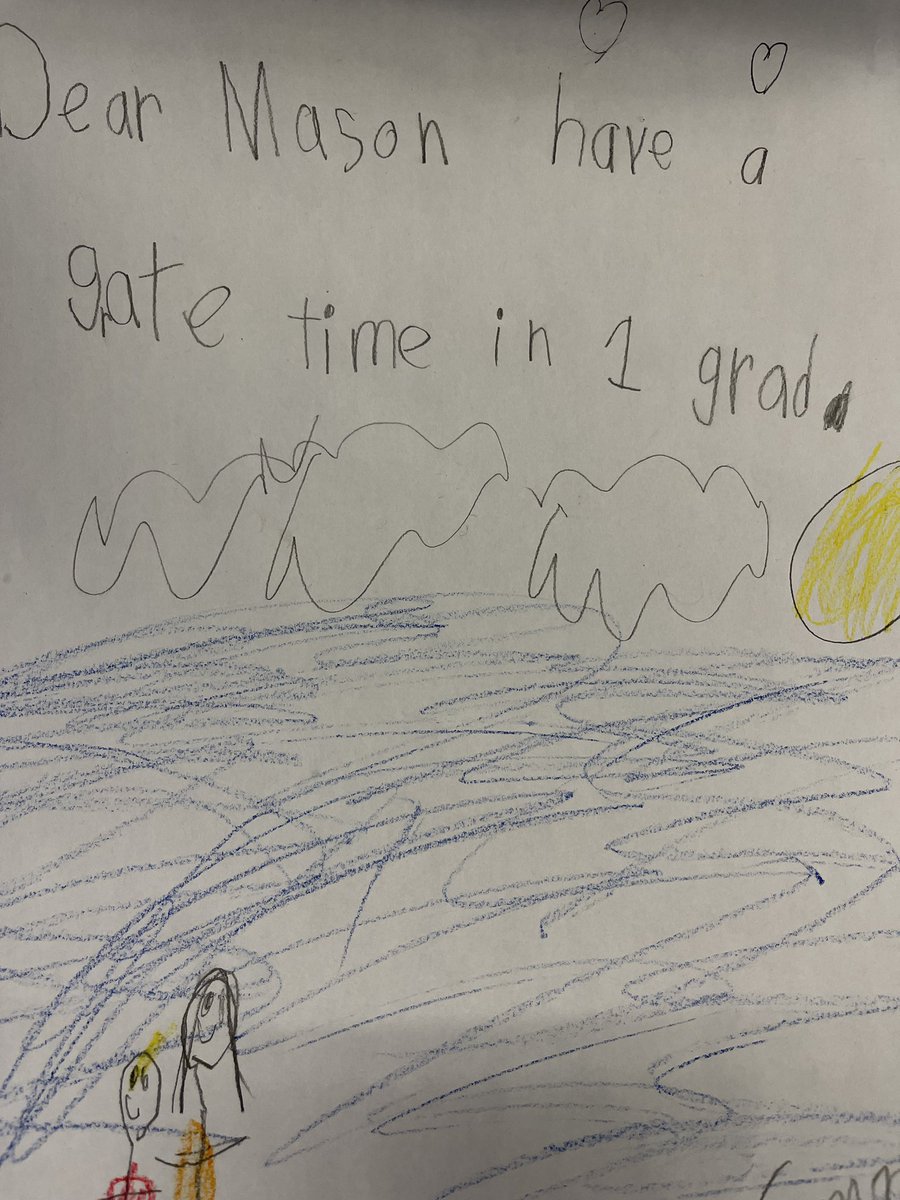 Dear Mason have a
grate time in 1 grad.